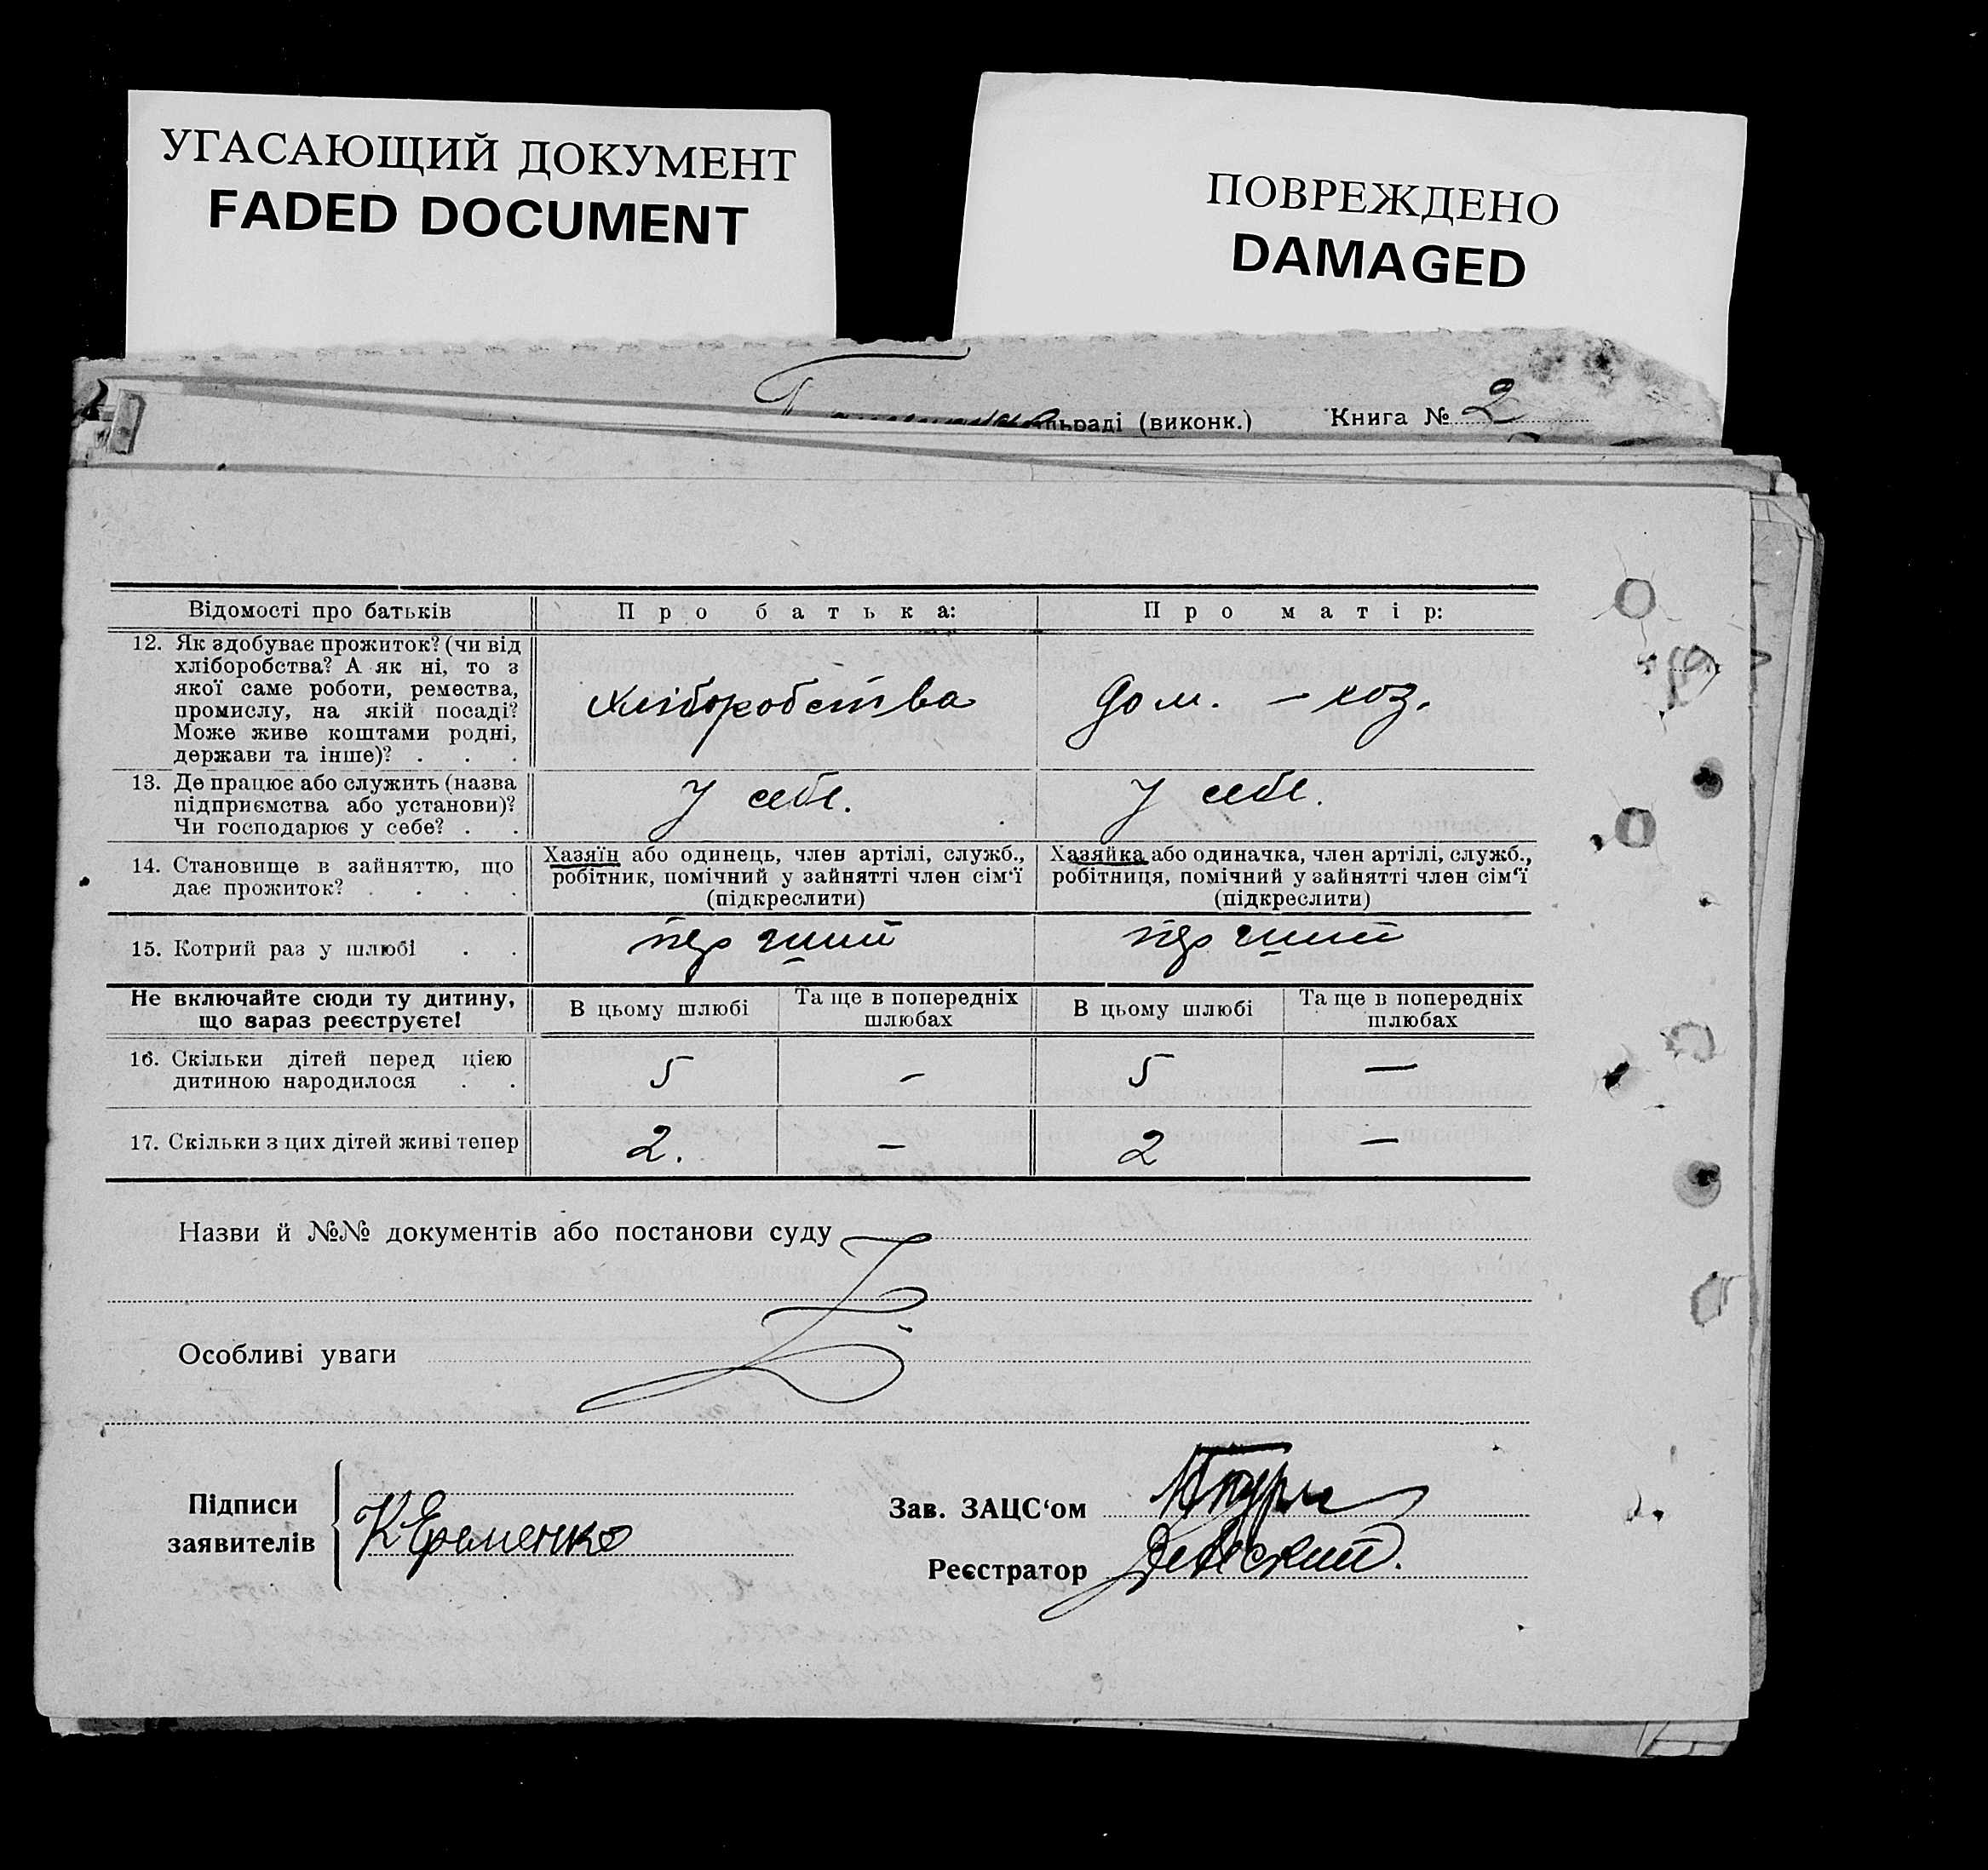 УГАСАЮЩИЙ ДОКУМЕНТ
FADED DOCUMENT
ПОВРЕЖДЕНО
DAMAGED
льраді (виконк.) Книга № 2
Відомості про батьків Про батька: Про матір:
12. Як здобуває прожиток? (чи від
хліборобства? А як ні, то з
якої саме роботи, ремества,
промислу, на якій посаді?
Може живе коштами родні,
держави та інше)? . . .
хліборобства дом. – хоз.
13. Де працює або служить (назва
підприємства або установи)?
Чи господарює у себе? . .
У себе. У себе.
14. Становище в зайняттю, що
дає прожиток? . . . .
Хазяїн або одинець, член артілі, служб.,
робітник, помічний у зайнятті член сім‘ї
(підкреслити)
Хазяйка або одиначка, член артілі, служб.,
робітниця, помічний у зайнятті член сім‘ї
(підкреслити)
15. Котрий раз у шлюбі . . перший перший
Не включайте сюди ту дитину,
що зараз реєструєте!
В цьому шлюбі Та ще в попередніх
шлюбах
В цьому шлюбі Та ще в попередніх
шлюбах
16. Скільки дітей перед цією
дитиною народилося . .
5 – 5 –
17. Скільки з цих дітей живі тепер 2. – 2 –
Назви й №№ документів або постанови суду
Особливі уваги
Підписи
заявителів
КЕременко
Зав. ЗАЦС‘ом
Реєстратор